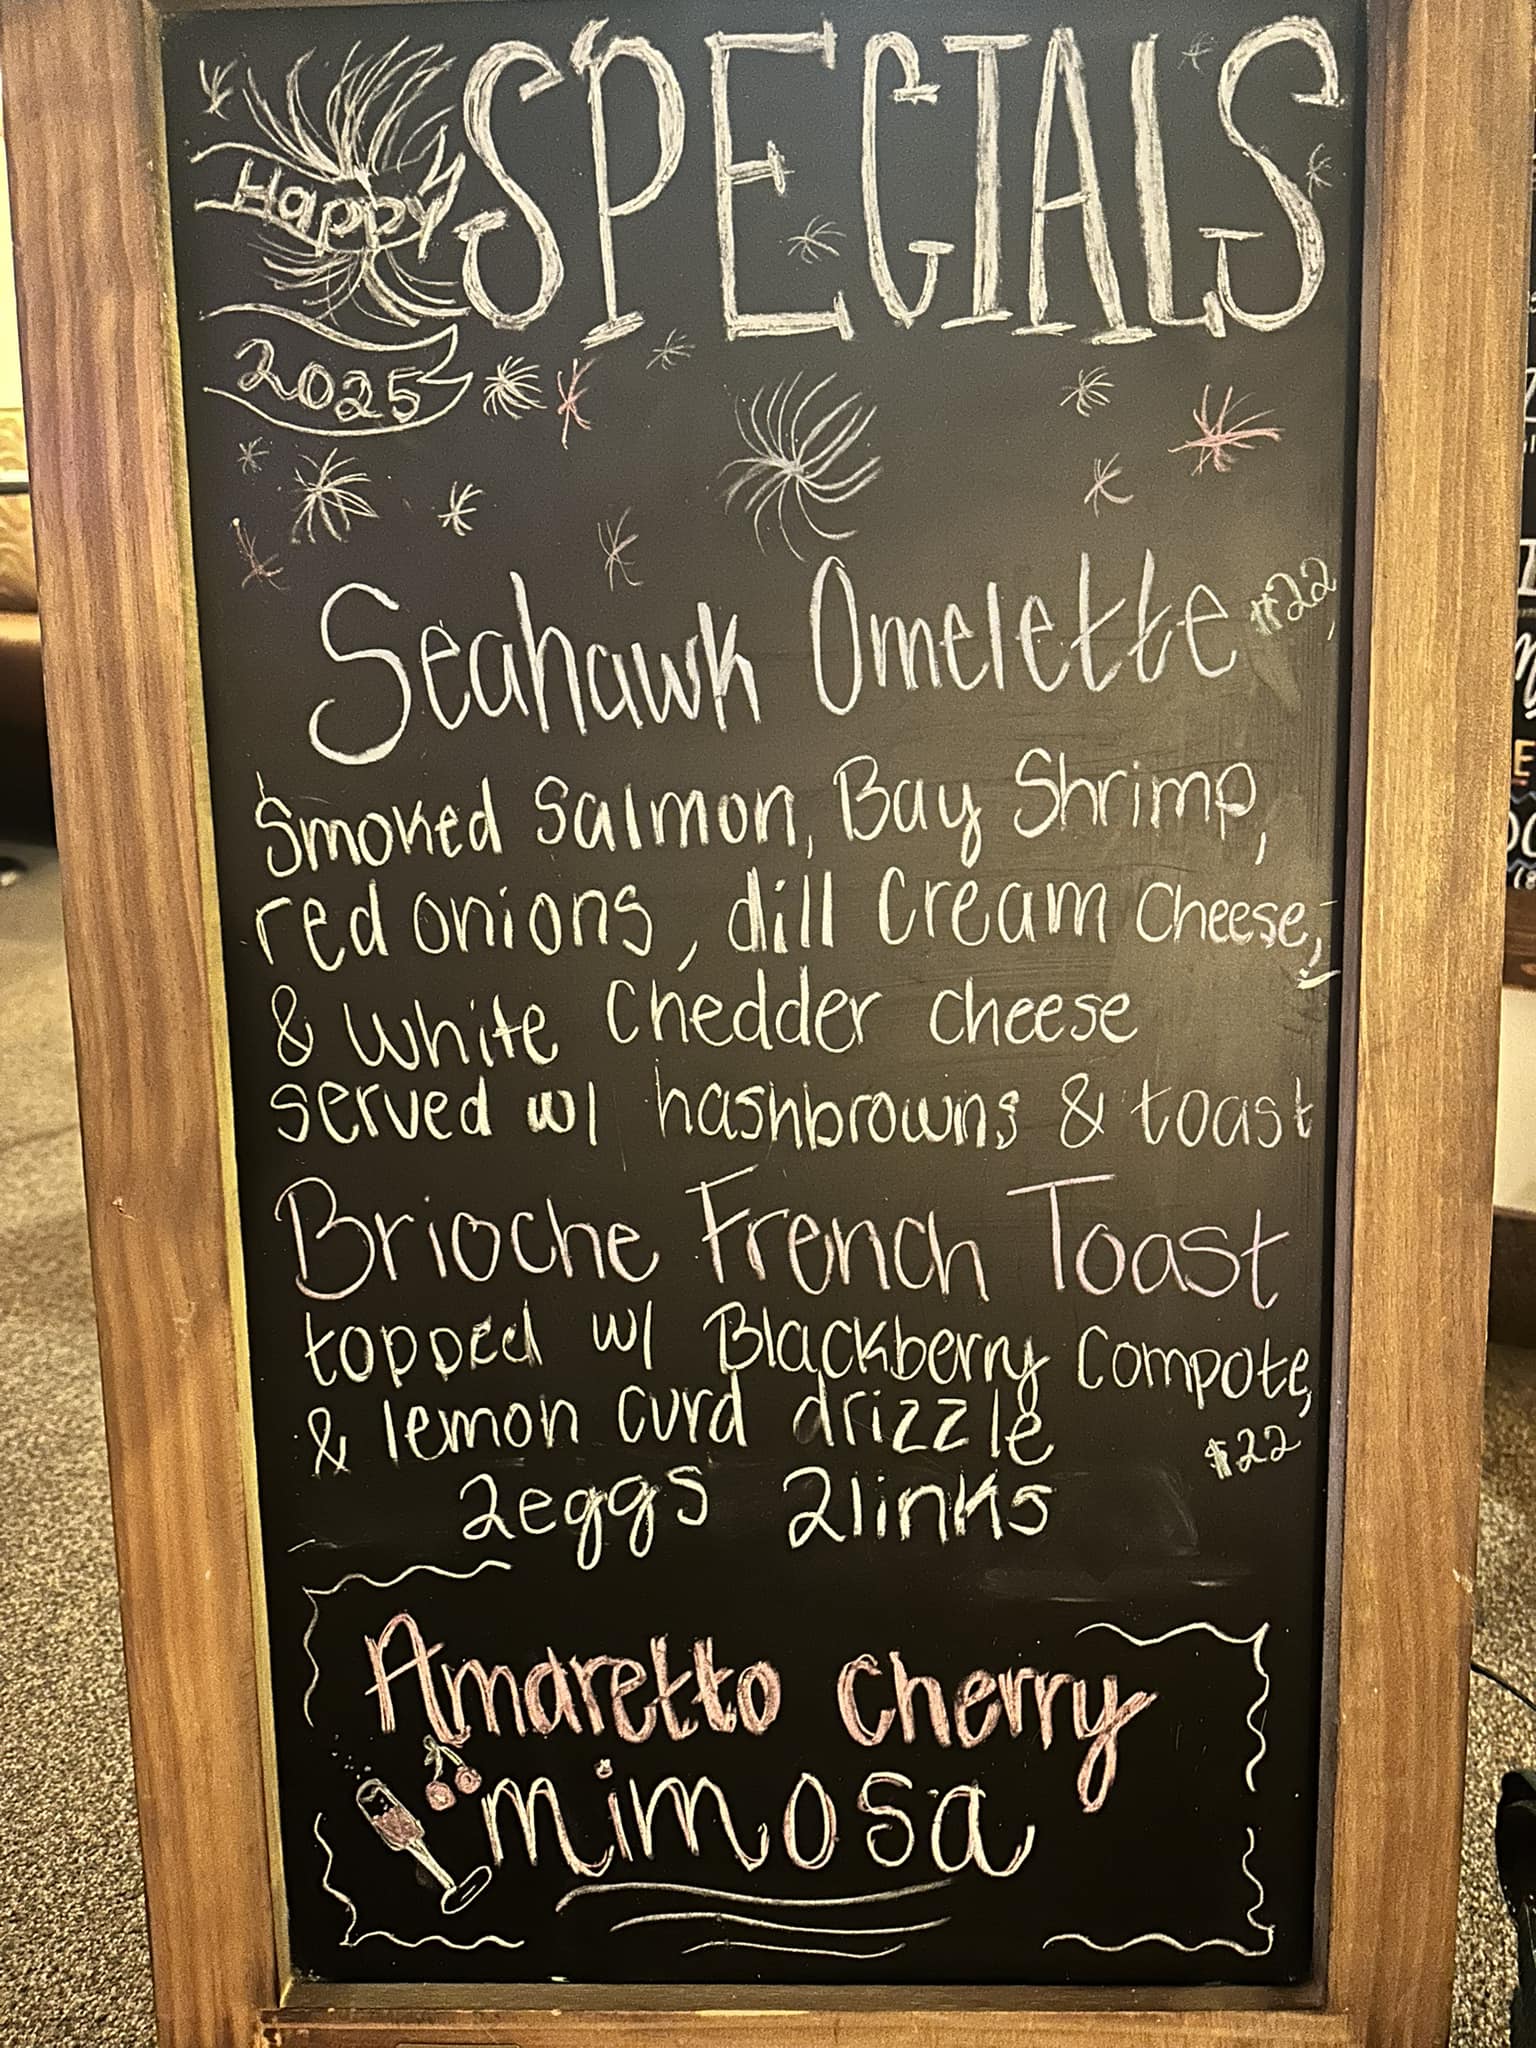 SPECIALS
Happy
2025
Seahawk Omelette $22
Smoked Salmon, Bay Shrimp,
red onions, dill Cream Cheese,
& White Chedder cheese
served w/ hashbrowns & toast
Brioche French Toast
topped w/ Blackberry Compote,
& lemon curd drizzle
$22
2eggs 2links
Amaretto Cherry
mimosa